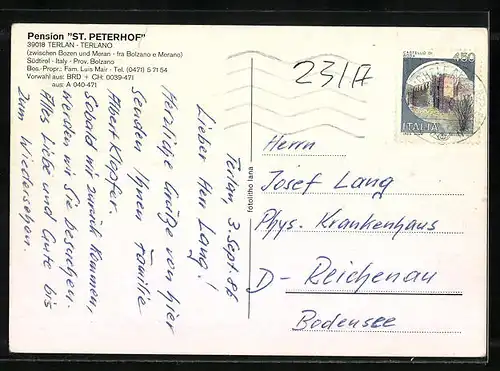 Pension "ST. PETERHOF"
39018 TERLAN - TERLANO
(zwischen Bozen und Meran - fra Bolzano e Merano)
Südtirol - Italy - Prov. Bolzano
Bes.-Propr.: Fam. Luis Mair - Tel. (0471) 5 71 54
Vorwahl aus: BRD + CH: 0039-471
aus: A 040-471
231A
CASTELLO DI
450
ITALIA
fotolitho lana
Terlan, 3. Sept. 86
Lieber Herr Lang!
Herzliche Grüße von hier
senden Ihnen Familie
Albert Klopfer.
Sobald wir zurück kommen,
werden wir Sie besuchen.
Alles Liebe und Gute bis
zum Wiedersehen.
Herrn
Josef Lang
Psy. Krankenhaus
D- Reichenau
Bodensee